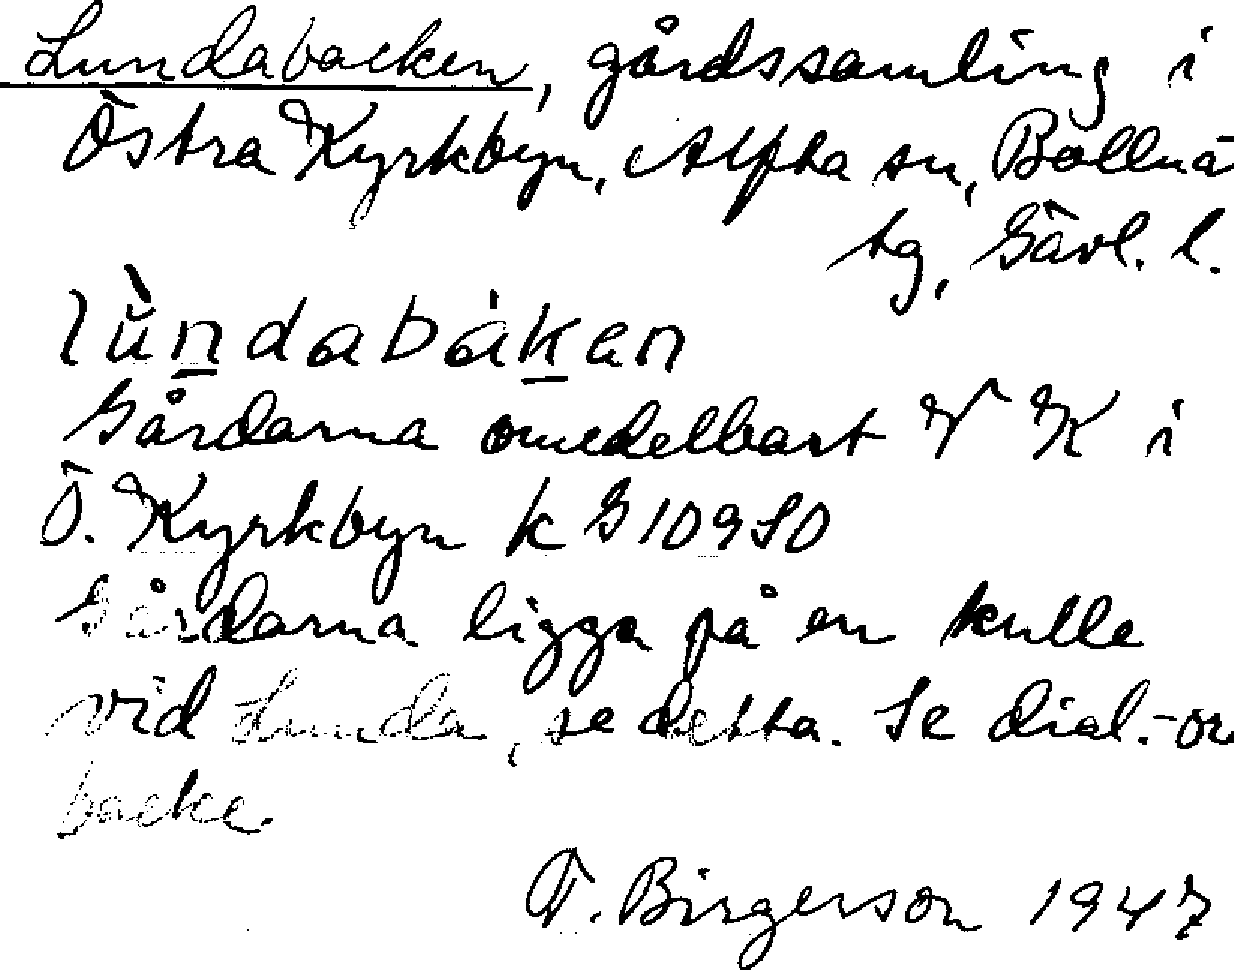 Lundabacken, gårdssamling i
Östra Kyrkbyn, Alfta sn, Bollnä
tg, Gävl. l.
lùndabàkan
Gårdarna omedelbart V K i
Ö. Kyrkbyn k G 10950
Gårdarna ligga på en kulle
vid Lunda, se detta. Se dial.-or
backe.
F. Birgerson 1947